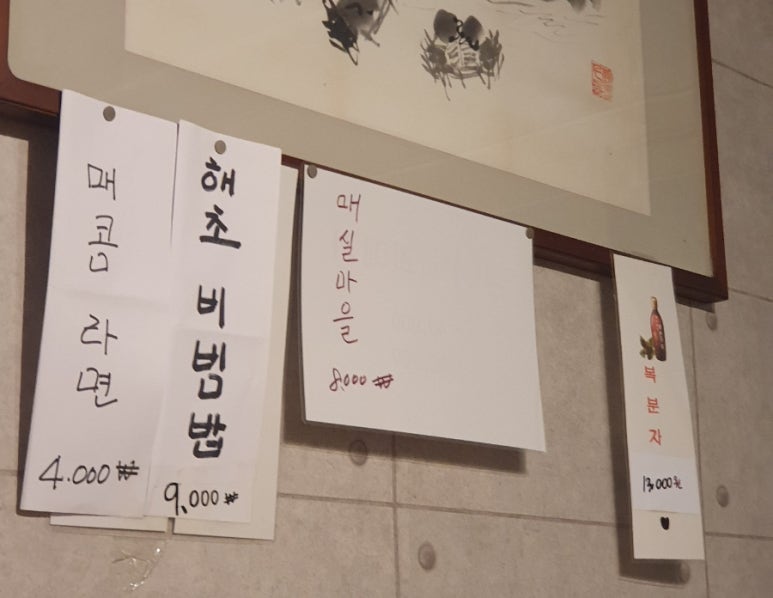 매콤 라면
4.000₩
해초 비빔밥
9,000₩
매실마을
8,000₩
복분자
13,000원